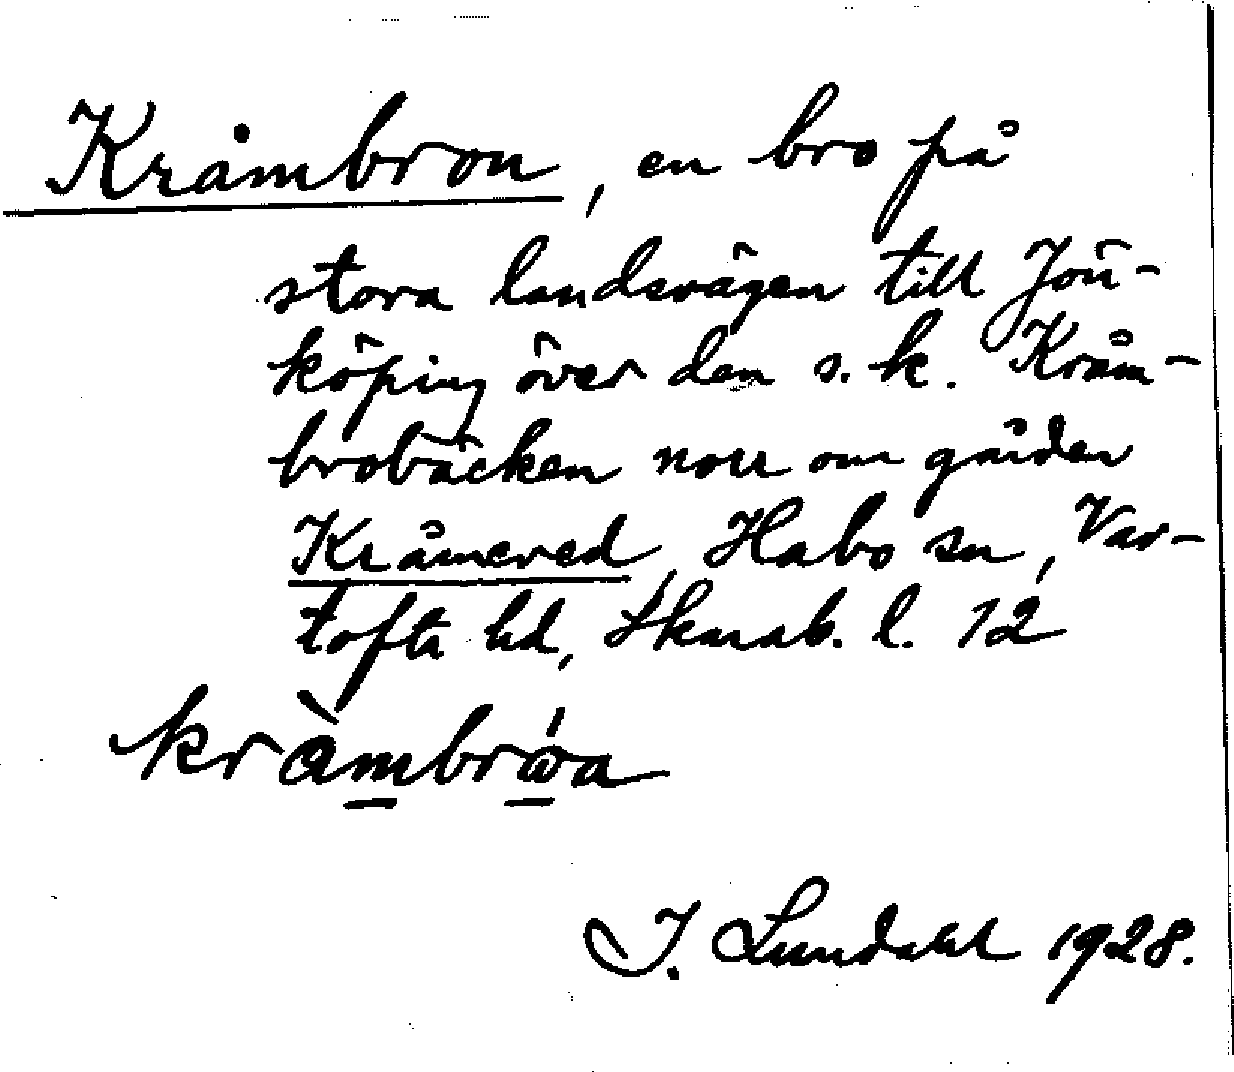 Kråmbron, en bro på
stora landsvägen till Jön-
köping över den s.k. Kråm-
brobäcken norr om gården
Kråmered, Habo sn, Var-
tofta hd, Skarab. l. 12
kràmbrώa
I. Lundahl 1928.